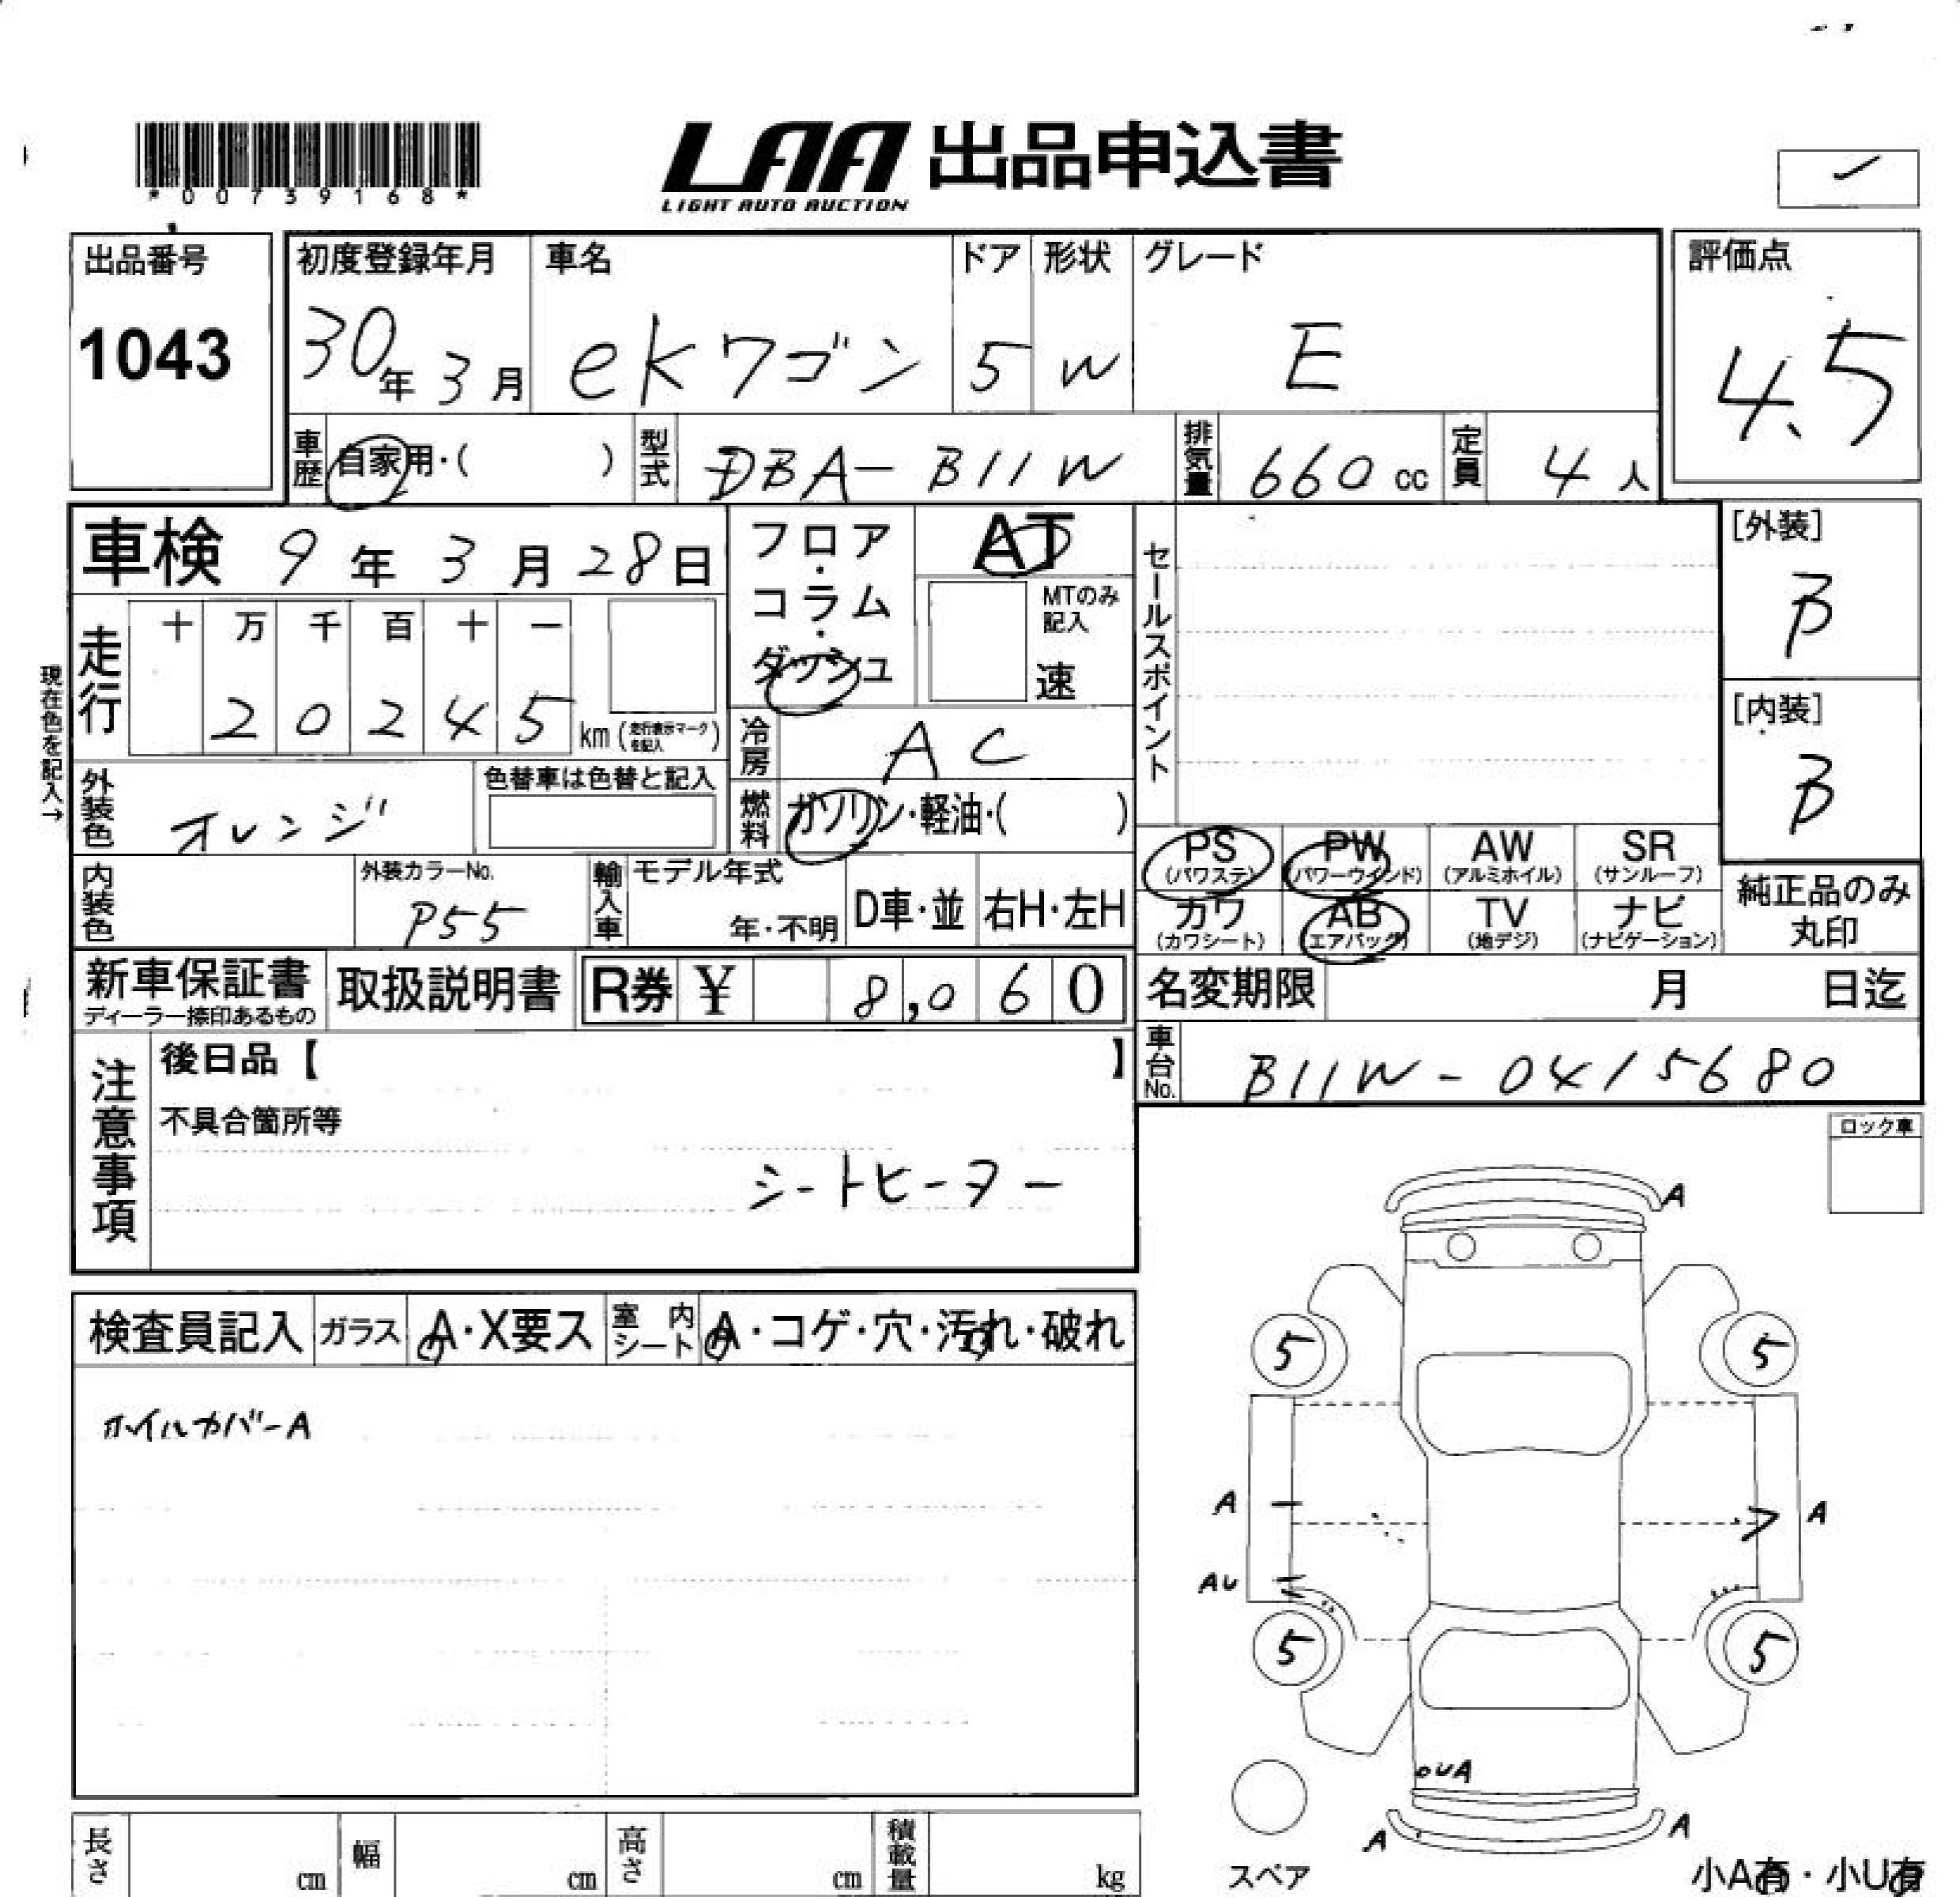 *00739168*
LAA 出品申込書
LIGHT AUTO AUCTION
出品番号 1043
初度登録年月 30年3月
車名 eKワゴン
ドア 5
形状 W
グレード E
評価点 4.5
車歴 自家用・( )
型式 DBA-B11W
排気量 660cc
定員 4人
車検 9年3月28日
フロア・コラム・ダッシュ
AT
MTのみ記入
速
セールスポイント
[外装] B
[内装] B
現在色を記入→
走行 十 万 千 百 十 一
20245 km(走行表示マークを記入)
冷房 AC
外装色 オレンジ
色替車は色替と記入
燃料 ガソリン・軽油・( )
PS (パワステ)
PW (パワーウインド)
AW (アルミホイル)
SR (サンルーフ)
カワ (カワシート)
AB (エアバッグ)
TV (地デジ)
ナビ (ナビゲーション)
純正品のみ丸印
内装色
外装カラーNo. P55
輸入車 モデル年式 年・不明
D車・並
右H・左H
新車保証書
ディーラー捺印あるもの
取扱説明書
R券 ¥ 8,060
名変期限 月 日迄
車台No. B11W-0415680
注意事項
後日品【 】
不具合箇所等
シートヒーター
ロック車
検査員記入 ガラス A・X要ス 室内シート A・コゲ・穴・汚れ・破れ
ホイルカバーA
A
5 5
A A
AU
5 5
UA
A A
スペア
小A有・小U有
長さ cm 幅 cm 高さ cm 積載量 kg